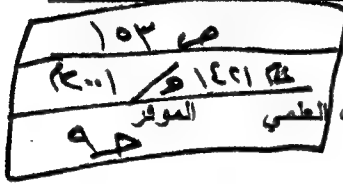 ص ١٥٣
١٤٢١ هـ / ٢٠٠١ م
العلمي الموقر
ص ٩